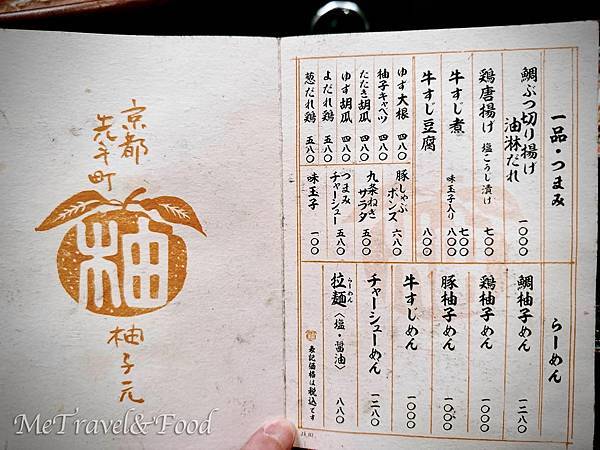 京都
先斗町
柚
柚子元
一品・つまみ
鯛ぶつ切り揚げ
油淋だれ
一〇〇〇
鶏唐揚げ 塩こうじ漬け
七〇〇
牛すじ煮
七〇〇
味玉子入り
八〇〇
牛すじ豆腐
八〇〇
ゆず大根 四八〇
柚子キャベツ 四八〇
たたき胡瓜 四八〇
ゆず胡瓜 四八〇
よだれ鶏 五八〇
葱だれ鶏 五八〇
豚しゃぶ
ポンズ
六八〇
九条ねぎ
サラダ
五〇〇
つまみ
チャーシュー
五八〇
味玉子 一〇〇
らーめん
鯛柚子めん 一二八〇
鶏柚子めん 一〇〇〇
豚柚子めん 一〇〇〇
牛すじめん 一〇〇〇
チャーシューめん 一二八〇
拉麺〈塩・醤油〉 八八〇
らーめん
表記価格は税込です
MeTravel&Food